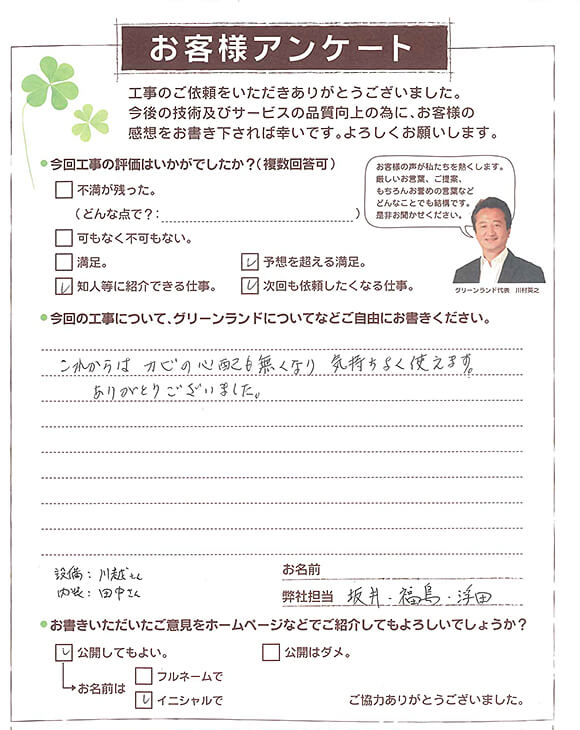 お客様アンケート
工事のご依頼をいただきありがとうございました。
今後の技術及びサービスの品質向上の為に、お客様の
感想をお書き下されば幸いです。よろしくお願いします。
今回工事の評価はいかがでしたか?(複数回答可)
お客様の声が私たちを熱くします。
厳しいお言葉、ご提案、
もちろんお誉めの言葉など
どんなことでも結構です。
是非お聞かせください。
グリーンランド代表 川村英之
不満が残った。
(どんな点で?: )
可もなく不可もない。
満足。 予想を超える満足。
知人等に紹介できる仕事。 次回も依頼したくなる仕事。
今回の工事について、グリーンランドについてなどご自由にお書きください。
これからは カビの心配も無くなり 気持ちよく使えます。
ありがとうございました。
設備:川越さん
内装:田中さん
お名前
弊社担当 坂井・福島・浮田
お書きいただいたご意見をホームページなどでご紹介してもよろしいでしょうか?
公開してもよい。 公開はダメ。
お名前は フルネームで
イニシャルで
ご協力ありがとうございました。